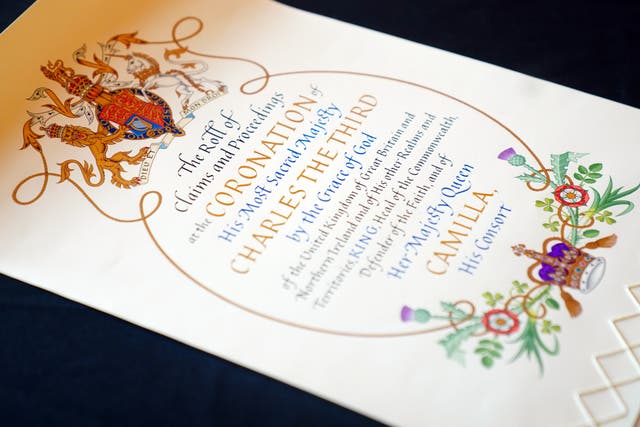 The Roll of
Claims and Proceedings
at the CORONATION of
His Most Sacred Majesty
CHARLES THE THIRD
by the Grace of God
of the United Kingdom of Great Britain and
Northern Ireland and of His other Realms and
Territories, KING, Head of the Commonwealth,
Defender of the Faith, and of
Her Majesty Queen
CAMILLA,
His Consort
DIEU ET